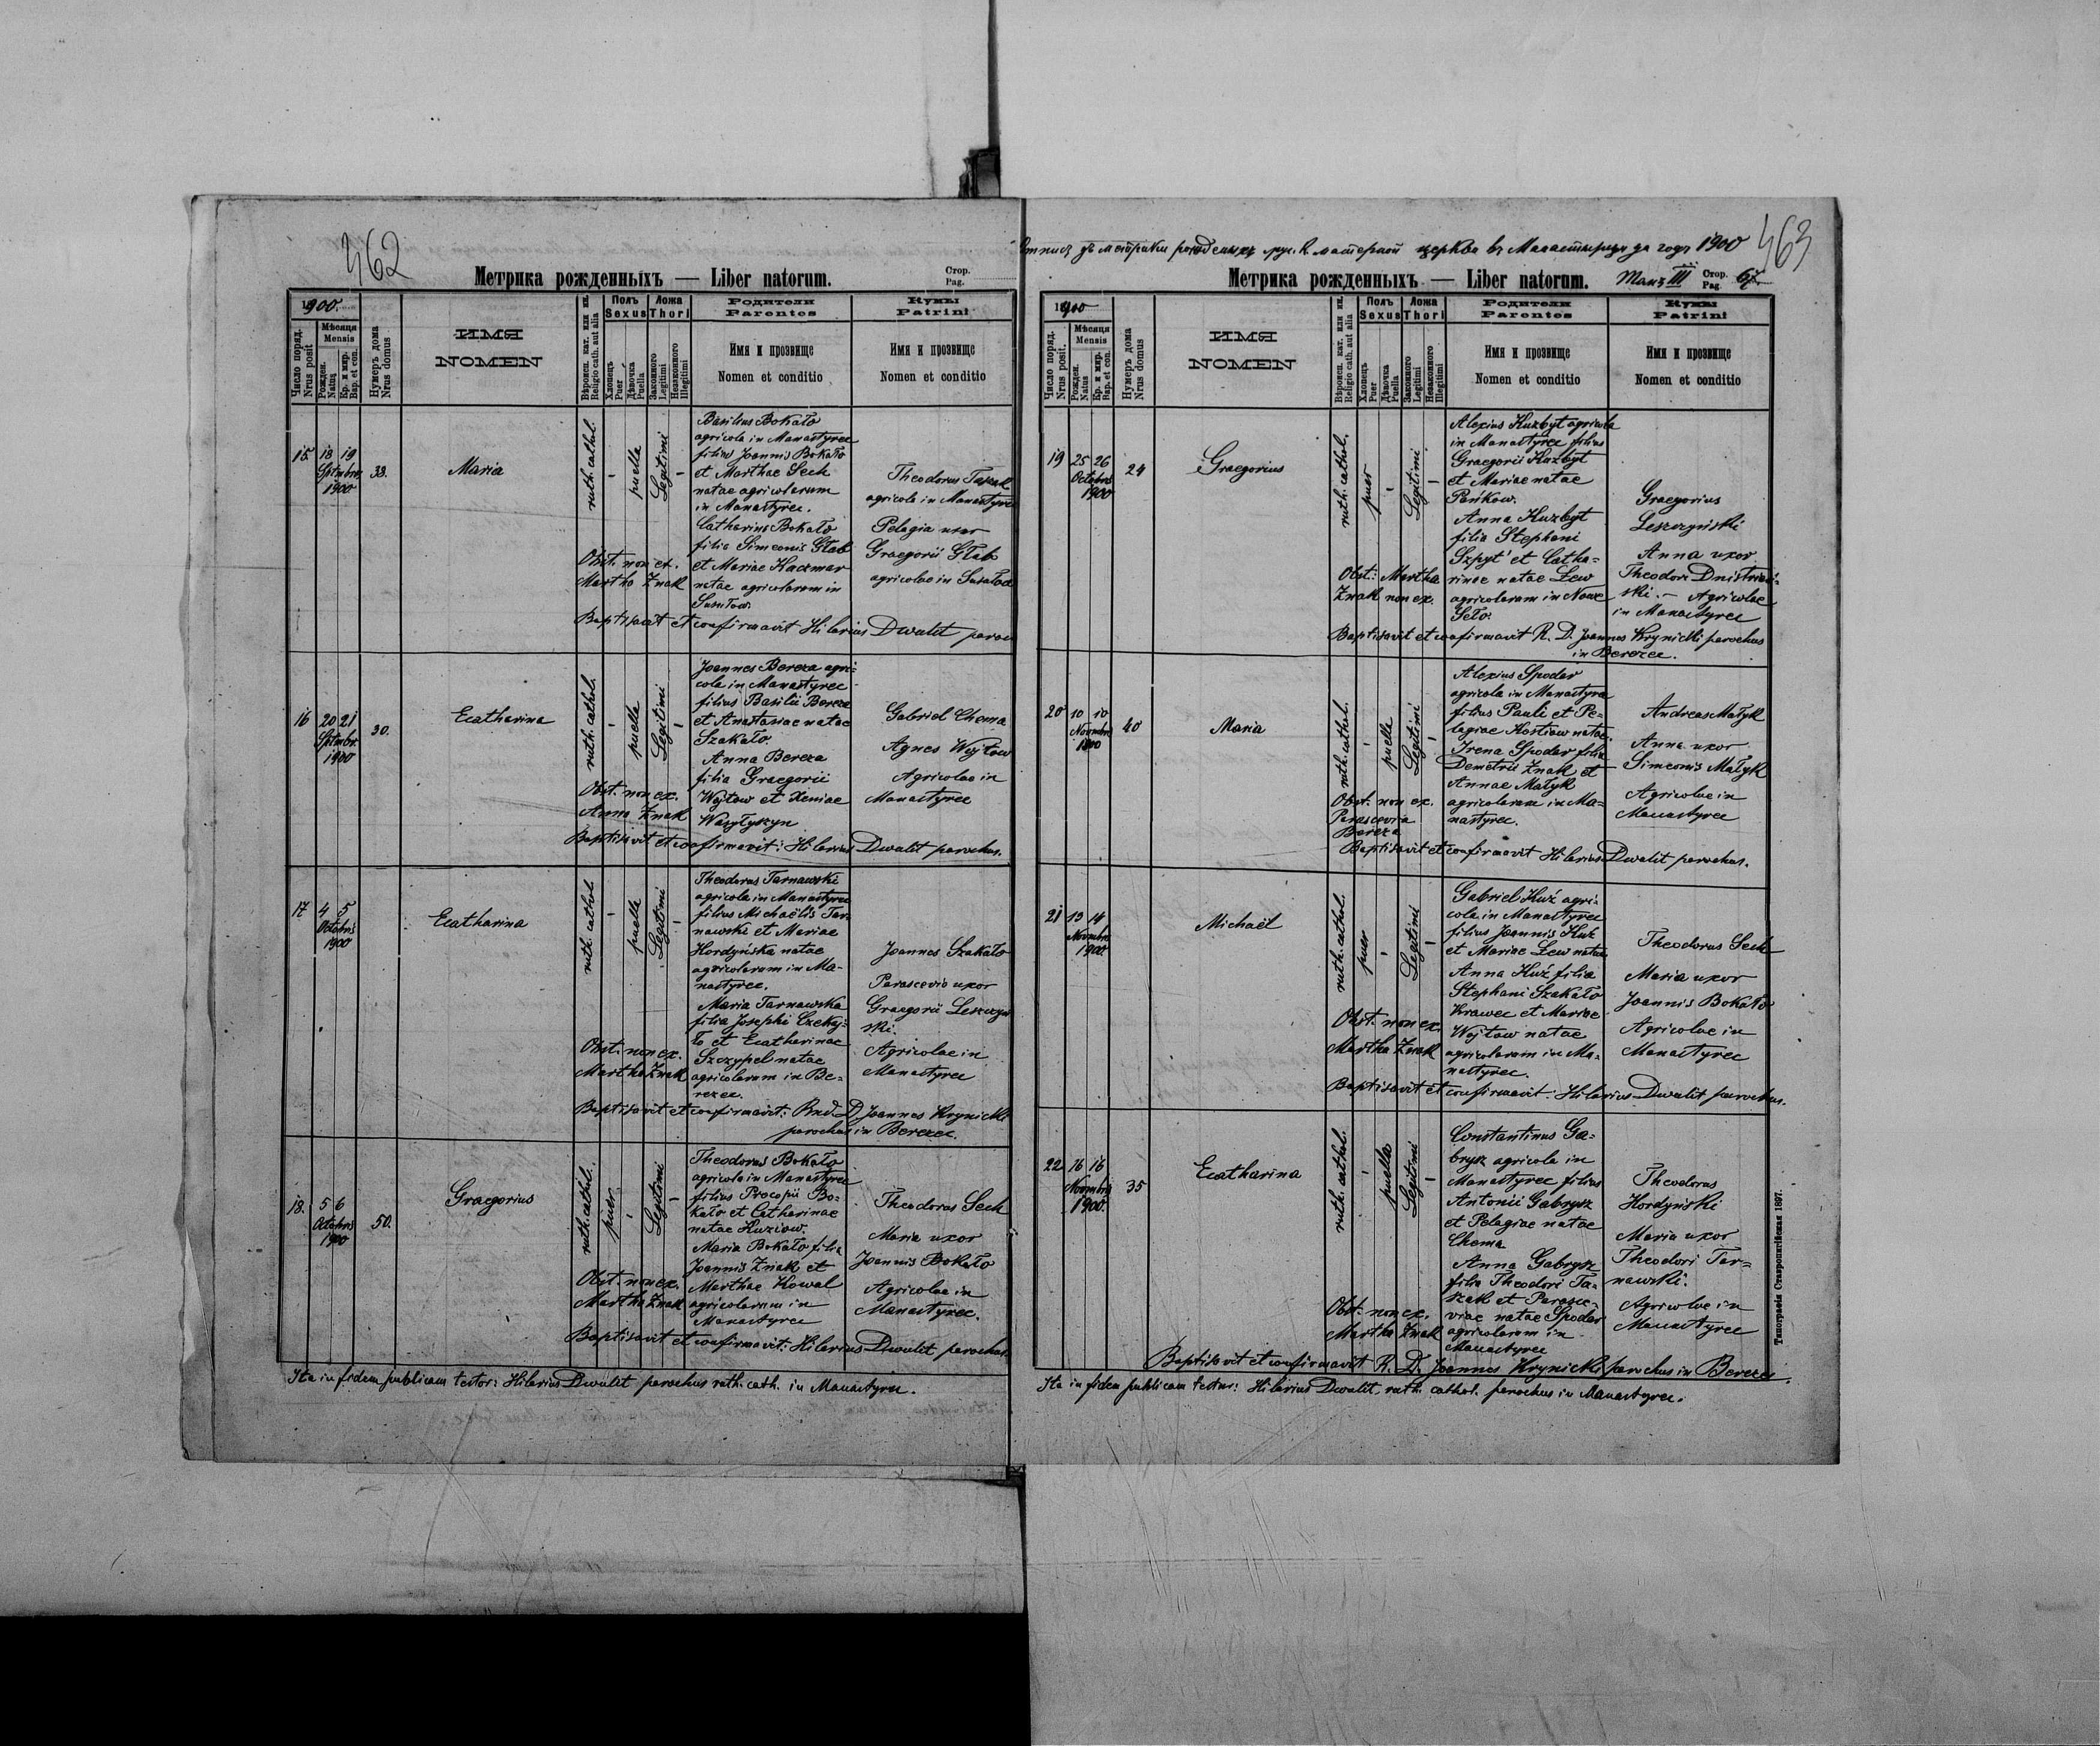 462
Метрика рожденныхъ — Liber natorum.
Стор.
Pag.
1900.
Число поряд.
Nrus posit
Мѣсяця
Mensis
Рожден.
Natus
Кр. и мир.
Bap. et con.
Нумеръ дома
Nrus domus
ИМЯ
NOMEN
Вѣроисп. кат. или ин.
Religio cath. aut alia
Полъ
Sexus
Хлопецъ
Puer
Дѣвочка
Puella
Ложа
Thori
Законного
Legitimi
Незаконного
Illegitimi
Родители
Parentes
Имя и прозвище
Nomen et conditio
Кумы
Patrini
Имя и прозвище
Nomen et conditio
15. 18 19
Septmbris
1900
33.
Maria
ruth. cathol.
-
puella
Legitimi
-
Basilius Bokało
agricola in Manastyrec
filius Joannis Bokało
et Marthae Sech
natae agricolarum
in Manastyrec.
Catharina Bokało
filia Simeonis Głab
et Mariae Kaczmar
natae agricolarum in
Susułow.
Theodorus Taszak
agricola in Manastyrec
Pelagia uxor
Graegorii Głab
agricolae in Susułow
Obst. non ex.
Martha Znak
Baptisavit et confirmavit Hilarius Dwulit paroch
16 20 21
Septmbr.
1900
30.
Ecatharina
ruth. cathol.
-
puella
Legitimi
-
Joannes Bereza agri-
cola in Manastyrec
filius Basilii Bereza
et Anastasiae natae
Szakało.
Anna Bereza
filia Graegorii
Wojtow et Xeniae
Wasyłyszyn
Gabriel Chema
Agnes Wojtow
Agricolae in
Manastyrec
Obst. non ex.
Anna Znak
Baptisavit et confirmavit: Hilarius Dwulit parochus.
17 4 5
Octobris
1900
Ecatharina
ruth. cathol.
-
puella
Legitimi
-
Theodorus Tarnawski
agricola in Manastyrec
filius Michaëlis Tar-
nawski et Mariae
Hordyńska natae
agricolarum in Ma-
nastyrec.
Maria Tarnawska
filia Josephi Czekaj-
ło et Ecatharinae
Szczypel natae
agricolarum in Be-
rezec.
Joannes Szakało
Parascevia uxor
Graegorii Leszczyń
ski.
Agricolae in
Manastyrec
Obst. non ex.
Martha Znak
Baptisavit et confirmavit: Rnd. D. Joannes Krynicki
parochus in Berezec.
18. 5 6
Octobris
1900
50.
Graegorius
ruth. cathol.
puer
-
Legitimi
-
Theodorus Bokało
agricola in Manastyrec
filius Procopii Bo-
kało et Catharinae
natae Kuziow.
Maria Bokało filia
Joannis Znak et
Marthae Kowal
agricolarum in
Manastyrec
Theodorus Sech
Maria uxor
Joannis Bokało
Agricolae in
Manastyrec.
Obst. non ex.
Martha Znak
Baptisavit et confirmavit: Hilarius Dwulit parochus.
Ita in fidem publicam testor: Hilarius Dwulit parochus ruth. cath. in Manastyrec.
463
церкви въ за годъ 1900
Метрика рожденныхъ — Liber natorum.
III
Стор.
Pag.
67
1900
Число поряд.
Nrus posit.
Мѣсяця
Mensis
Рожден.
Natus
Кр. и мир.
Bap. et con.
Нумеръ дома
Nrus domus
ИМЯ
NOMEN
Вѣроисп. кат. или ин.
Religio cath. aut alia
Полъ
Sexus
Хлопецъ
Puer
Дѣвочка
Puella
Ложа
Thori
Законного
Legitimi
Незаконного
Illegitimi
Родители
Parentes
Имя и прозвище
Nomen et conditio
Кумы
Patrini
Имя и прозвище
Nomen et conditio
19 25 26
Octobris
1900
24
Graegorius
ruth. cathol.
puer
-
Legitimi
-
Alexius Kuzbyt agricola
in Manastyrec filius
Graegorii Kuzbyt
et Mariae natae
Pańkow.
Anna Kuzbyt
filia Stephani
Szpyt' et Catha-
rinae natae Lew
agricolarum in Nowe
Seło.
Graegorius
Leszczyński
Anna uxor
Theodori Dnistrian-
ski. — Agricolae
in Manastyrec
Obst: Martha
Znak non ex.
Baptisavit et confirmavit R. D. Joannes Krynicki parochus
in Berezec.
20 10 10
Novmbris
1900
40
Maria
ruth. cathol.
-
puella
Legitimi
-
Alexius Spodar
agricola in Manastyrec
filius Pauli et Pe-
lagiae Kostiow natae.
Irena Spodar filia
Demetrii Znak et
Annae Małyk
agricolarum in Ma-
nastyrec.
Andreas Małyk
Anna uxor
Simeonis Małyk
Agricolae in
Manastyrec
Obst. non ex.
Parascevia
Bereza
Baptisavit et confirmavit Hilarius Dwulit parochus.
21 13 14
Novmbris
1900.
Michaël
ruth. cathol.
puer
-
Legitimi
-
Gabriel Kuź agri-
cola in Manastyrec
filius Joannis Kuź
et Mariae Lew natae
Anna Kuź filia
Stephani Szakało
Krawec et Mariae
Wojtow natae
agricolarum in Ma-
nastyrec.
Theodorus Sech
Maria uxor
Joannis Bokało
Agricolae in
Manastyrec
Obst. non ex.
Martha Znak
Baptisavit et confirmavit: Hilarius Dwulit parochus.
22 16 16
Novmbris
1900.
35
Ecatharina
ruth. cathol.
-
puella
Legitimi
-
Constantinus Ga-
brysz agricola in
Manastyrec filius
Antonii Gabrysz
et Pelagiae natae
Chema
Anna Gabrysz
filia Theodori Ta-
szak et Parasce-
viae natae Spodar
agricolarum in
Manastyrec
Theodorus
Hordyński
Maria uxor
Theodori Tar-
nawski.
Agricolae in
Manastyrec
Obst. non ex.
Martha Znak
Baptisavit et confirmavit R. D. Joannes Krynicki parochus in Berezec.
Ita in fidem publicam testor: Hilarius Dwulit ruth. cathol. parochus in Manastyrec.
Типографія Ставропигійская 1897.